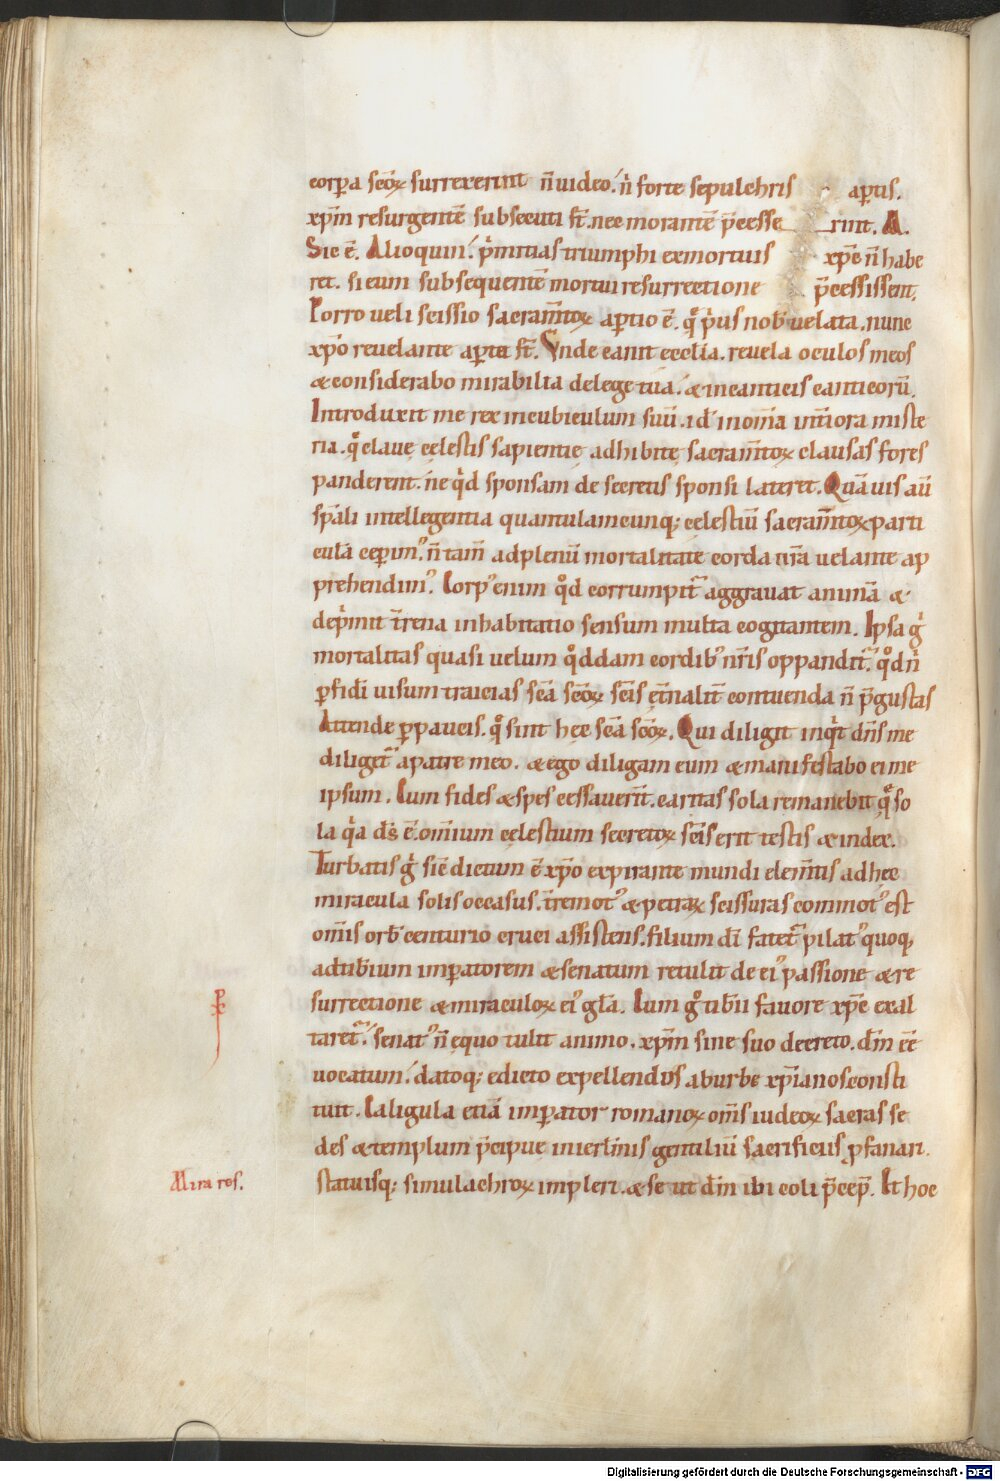 corꝑa scōꝝ surrexerunt n̄ uideo. n̄ forte sepulchris aꝑtis.
xp̄m resurgentē subsecuti st̄. nec morantē p̄cesserint. A.
Sic ē. Alioquin p̄mitias triumphi ex mortuis xp̄c n̄ habe
ret. si eum subsequentē mortui resurrectione p̄cessissent.
Porro ueli scissio sacram̄toꝝ aꝑtio ē. quę p̄us nob̄ uelata. nunc
xp̄o reuelante aꝑta st̄. Vnde canit ecclīa. reuela oculos meos
& considerabo mirabilia de lege tua. & in canticis canticorū.
Introduxit me rex in cubiculum suū. id ÷ in om̄ia int̄iora miste
ria. q̄ claue cęlestis sapientię adhibitę sacram̄toꝝ clausas fores
panderent. ne qd sponsam de secretis sponsi lateret. Quāuis aū
sp̄ali intellegentia quantulamcunq; cęlestiū sacram̄toꝝ parti
culā ceꝑim᾿. n̄ tam̄ ad plenū mortalitate corda n̄ra uelante ap
prehendim᾿. Corp᾿ enim qd corrumpit᷑ aggrauat animā &
dep̄mit t̄rena inhabitatio sensum multa cogitantem. Ipsa g̊
mortalitas quasi uelum qddam cordib᾿ nr̄is oppandit᷑. qd n̄
ꝑ fidē uisum traicias scā scōꝝ scīs et̄nalit̄ contuenda n̄ p̄gustas
Attende ꝑpaucis. q̄ sint hęc scā scōꝝ. Qui diligit inqt dn̄s me
diliget᷑ a patre meo. & ego diligam eum & manifestabo ei me
ipsum. Cum fides & spes cessauerīt. caritas sola remanebit q̄ so
la q̄a ds̄ ē. om̄ium cęlestium secretoꝝ scīs erit testis & index.
Turbatis g̊ sic̄ dictum ē xp̄o expirante mundi elem̄tis ad hęc
miracula solis occasus. t̄remot᾿ & petraꝝ scissuras commot᾿ est
om̄is orb̄ centurio cruci assistens. filium dī fatet᷑ pilat᾿ quoq,
ad tib̄ium imꝑatorem & senatum retulit de ei᾿ passione & re
surrectione & miraculoꝝ ei᾿ gl̄a. Cum g̊ tib̄ii fauore xp̄c exal
taret᷑. senat᾿ n̄ ęquo tulit animo. xp̄m sine suo decreto. dm̄ eē
uocatum. datoq; edicto expellendos ab urbe xp̄ianos consti
tuit. Caligula etiā imꝑator romanoꝝ om̄s iudeoꝝ sacras se
des & templum p̄cipuę in ierl̄imis gentiliū sacrificiis ꝓfanari.
statuisq; simulachroꝝ impleri. & se ut dm̄ ibi coli p̄cep̄. Et hoc
Mira res.